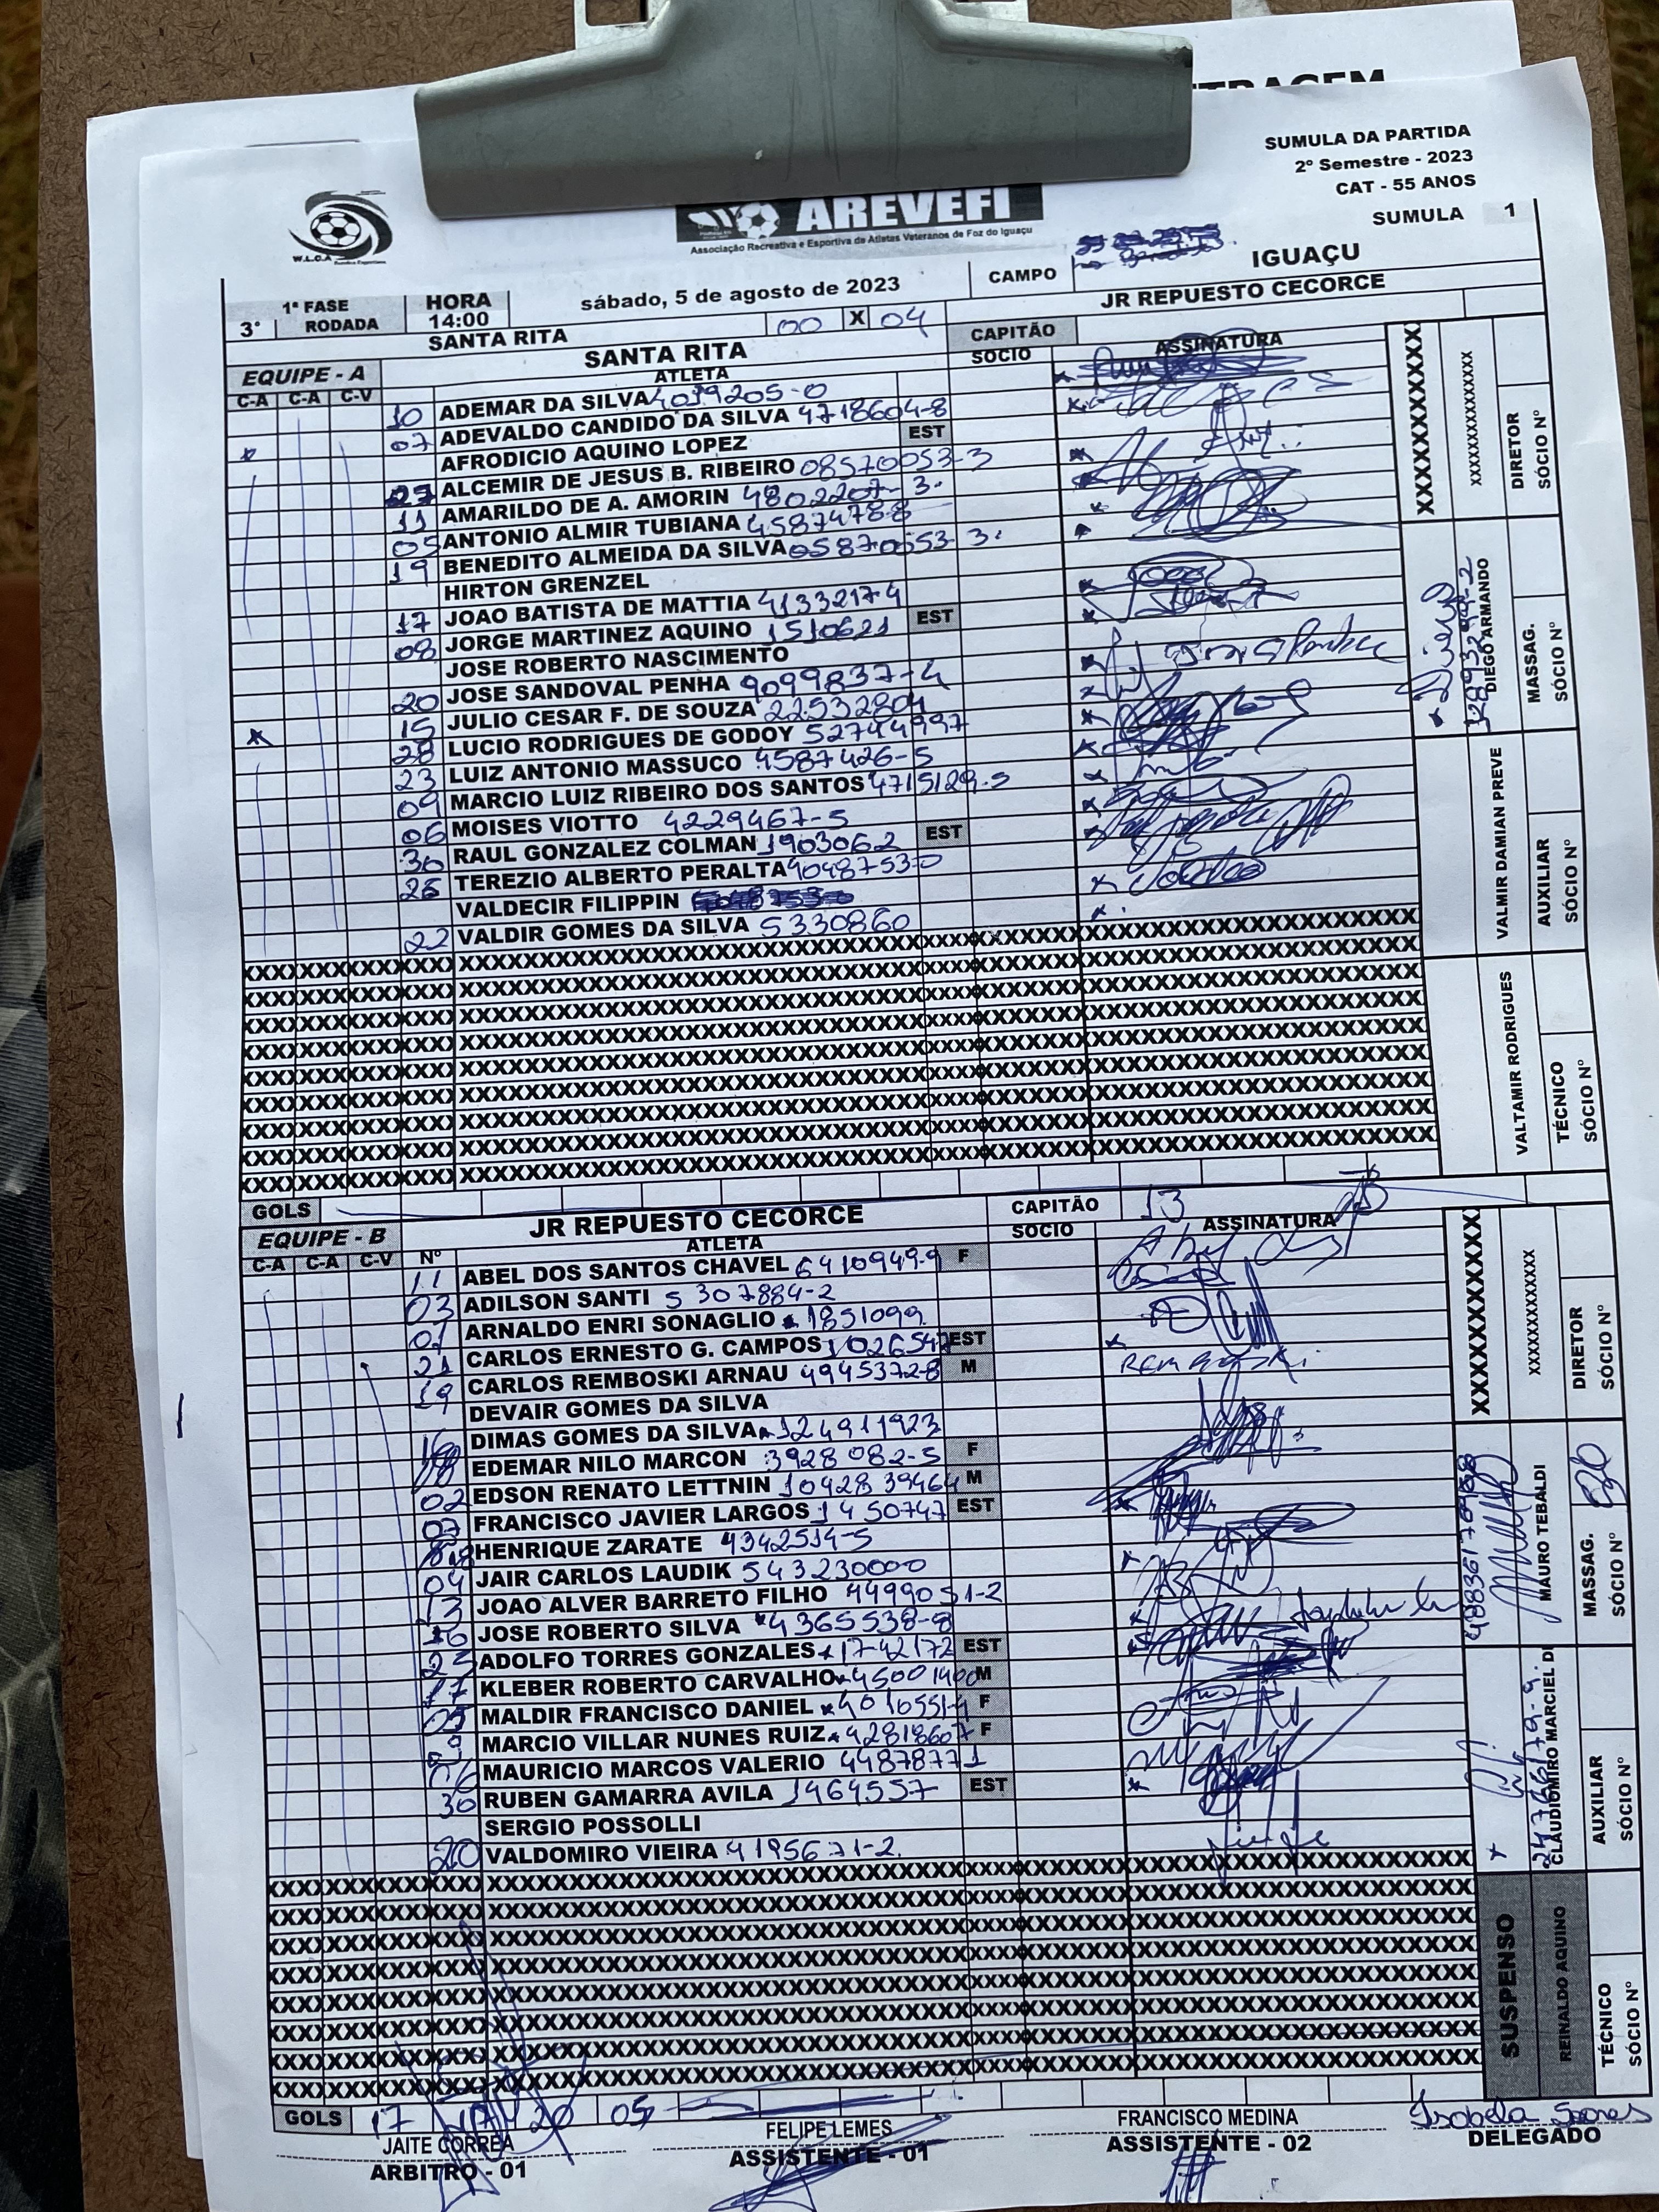 SUMULA DA PARTIDA
2º Semestre - 2023
CAT - 55 ANOS
SUMULA 1
W.L.C.A
AREVEFI
Associação Recreativa e Esportiva de Atletas Veteranos de Foz do Iguaçu
3° 1ª FASE RODADA HORA 14:00 sábado, 5 de agosto de 2023 CAMPO IGUAÇU
SANTA RITA 00 X 04 JR REPUESTO CECORCE
EQUIPE - A SANTA RITA CAPITÃO
C-A C-A C-V ATLETA SOCIO ASSINATURA
10 ADEMAR DA SILVA 4019205-0
07 ADEVALDO CANDIDO DA SILVA 4718604-8
AFRODICIO AQUINO LOPEZ EST
27 ALCEMIR DE JESUS B. RIBEIRO 08570053-3
11 AMARILDO DE A. AMORIN 4802207-3.
05 ANTONIO ALMIR TUBIANA 45874788
19 BENEDITO ALMEIDA DA SILVA 05870553 3.
HIRTON GRENZEL
17 JOAO BATISTA DE MATTIA 41332174
08 JORGE MARTINEZ AQUINO 1510621 EST
JOSE ROBERTO NASCIMENTO
20 JOSE SANDOVAL PENHA 9099837-4
15 JULIO CESAR F. DE SOUZA 22532804
28 LUCIO RODRIGUES DE GODOY 52744997
23 LUIZ ANTONIO MASSUCO 4587426-5
09 MARCIO LUIZ RIBEIRO DOS SANTOS 4715129-5
06 MOISES VIOTTO 4229467-5
30 RAUL GONZALEZ COLMAN 1903062 EST
26 TEREZIO ALBERTO PERALTA 9048753-0
VALDECIR FILIPPIN
22 VALDIR GOMES DA SILVA 5330860
XXXXXXXXXXXXX
DIRETOR SÓCIO Nº
DIEGO ARMANDO
MASSAG. SÓCIO Nº
VALMIR DAMIAN PREVE
AUXILIAR SÓCIO Nº
VALTAMIR RODRIGUES
TÉCNICO SÓCIO Nº
GOLS
EQUIPE - B JR REPUESTO CECORCE CAPITÃO 13
C-A C-A C-V Nº ATLETA SOCIO ASSINATURA
11 ABEL DOS SANTOS CHAVEL 6410949-9 F
03 ADILSON SANTI 5307884-2
01 ARNALDO ENRI SONAGLIO 1851099
21 CARLOS ERNESTO G. CAMPOS EST
19 CARLOS REMBOSKI ARNAU 49453728 M
DEVAIR GOMES DA SILVA
DIMAS GOMES DA SILVA 124911923
EDEMAR NILO MARCON 3928082-5 F
02 EDSON RENATO LETTNIN 1042839464 M
07 FRANCISCO JAVIER LARGOS 1450747 EST
HENRIQUE ZARATE 4342514-5
04 JAIR CARLOS LAUDIK 543230000
13 JOAO ALVER BARRETO FILHO 4499051-2
JOSE ROBERTO SILVA 4365538-8
ADOLFO TORRES GONZALES 1742172 EST
17 KLEBER ROBERTO CARVALHO M
05 MALDIR FRANCISCO DANIEL F
MARCIO VILLAR NUNES RUIZ 42818607 F
MAURICIO MARCOS VALERIO 44878771
30 RUBEN GAMARRA AVILA 1464557 EST
SERGIO POSSOLLI
20 VALDOMIRO VIEIRA 4195671-2.
XXXXXXXXXXXXX
DIRETOR SÓCIO Nº
MAURO TEBALDI
MASSAG. SÓCIO Nº
CLAUDIOMIRO MARCIEL DI
AUXILIAR SÓCIO Nº
SUSPENSO
REINALDO AQUINO
TÉCNICO SÓCIO Nº
GOLS 17 20 05
JAITE CORREA
ARBITRO - 01
FELIPE LEMES
ASSISTENTE - 01
FRANCISCO MEDINA
ASSISTENTE - 02
Isabela Soares
DELEGADO